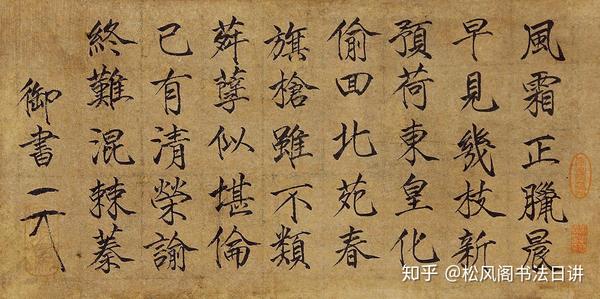 風霜正臘晨
早見幾枝新
預荷東皇化
偷回北苑春
旗槍雖不類
荈孽似堪倫
已有清榮諭
終難混棘蓁
御書
知乎 @松风阁书法日讲